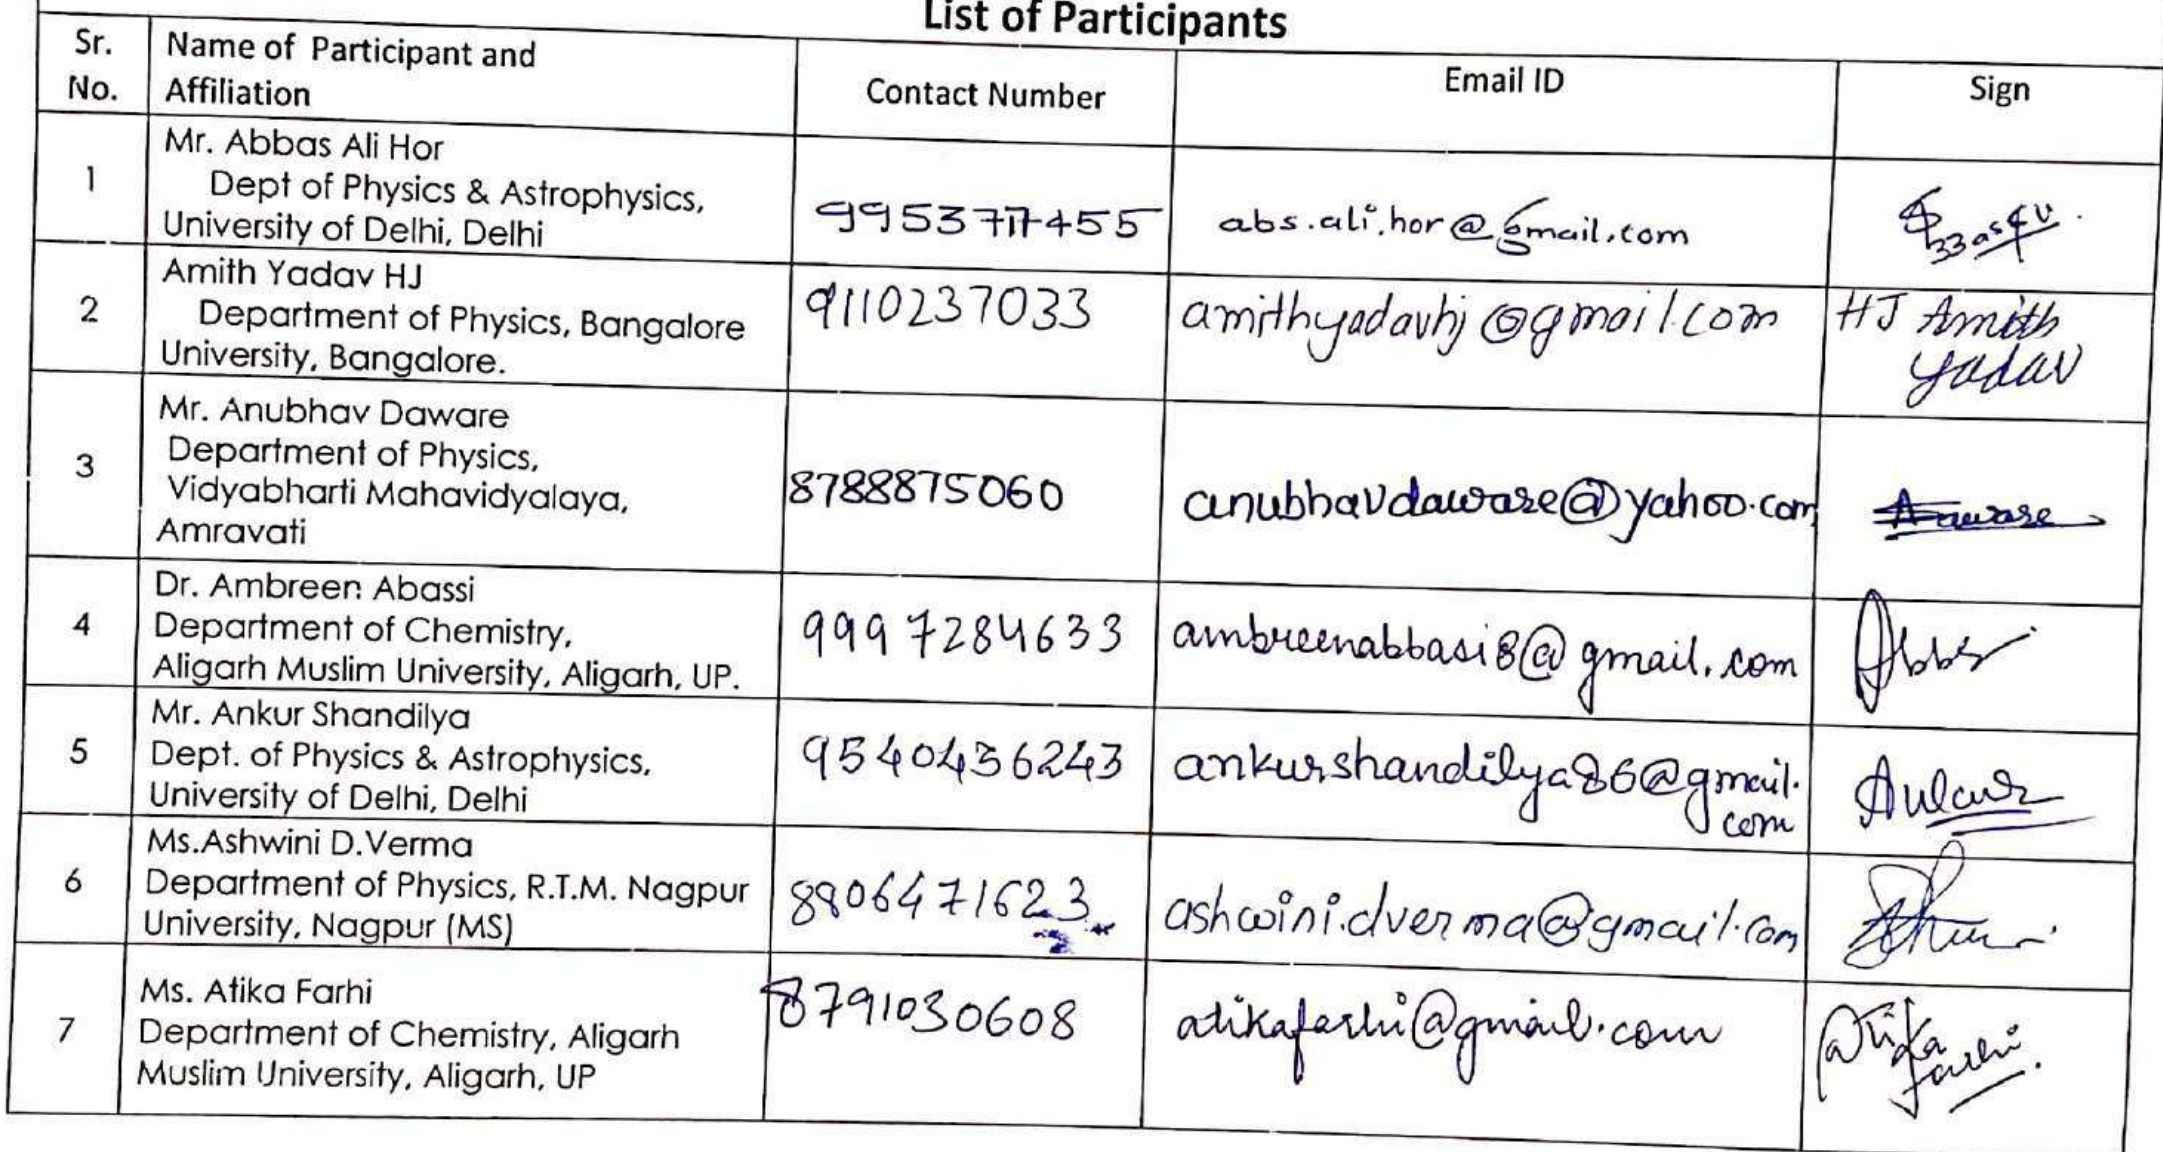 List of Participants
Sr. No.
Name of Participant and Affiliation
Contact Number
Email ID
Sign
1
Mr. Abbas Ali Hor
Dept of Physics & Astrophysics,
University of Delhi, Delhi
abs.ali.hor@gmail.com
2
Amith Yadav HJ
Department of Physics, Bangalore
University, Bangalore.
9110237033
amithyadavhj@gmail.com
HJ Amith
Yadav
3
Mr. Anubhav Daware
Department of Physics,
Vidyabharti Mahavidyalaya,
Amravati
8788875060
anubhavdaware@yahoo.com
4
Dr. Ambreen Abassi
Department of Chemistry,
Aligarh Muslim University, Aligarh, UP.
9997284633
ambreenabbasi8@gmail.com
5
Mr. Ankur Shandilya
Dept. of Physics & Astrophysics,
University of Delhi, Delhi
9540436243
ankurshandilya86@gmail.
com
6
Ms.Ashwini D.Verma
Department of Physics, R.T.M. Nagpur
University, Nagpur (MS)
8806471623
ashwini.dverma@gmail.com
7
Ms. Atika Farhi
Department of Chemistry, Aligarh
Muslim University, Aligarh, UP
8791030608
atikafarhi@gmail.com
Atika
farhi